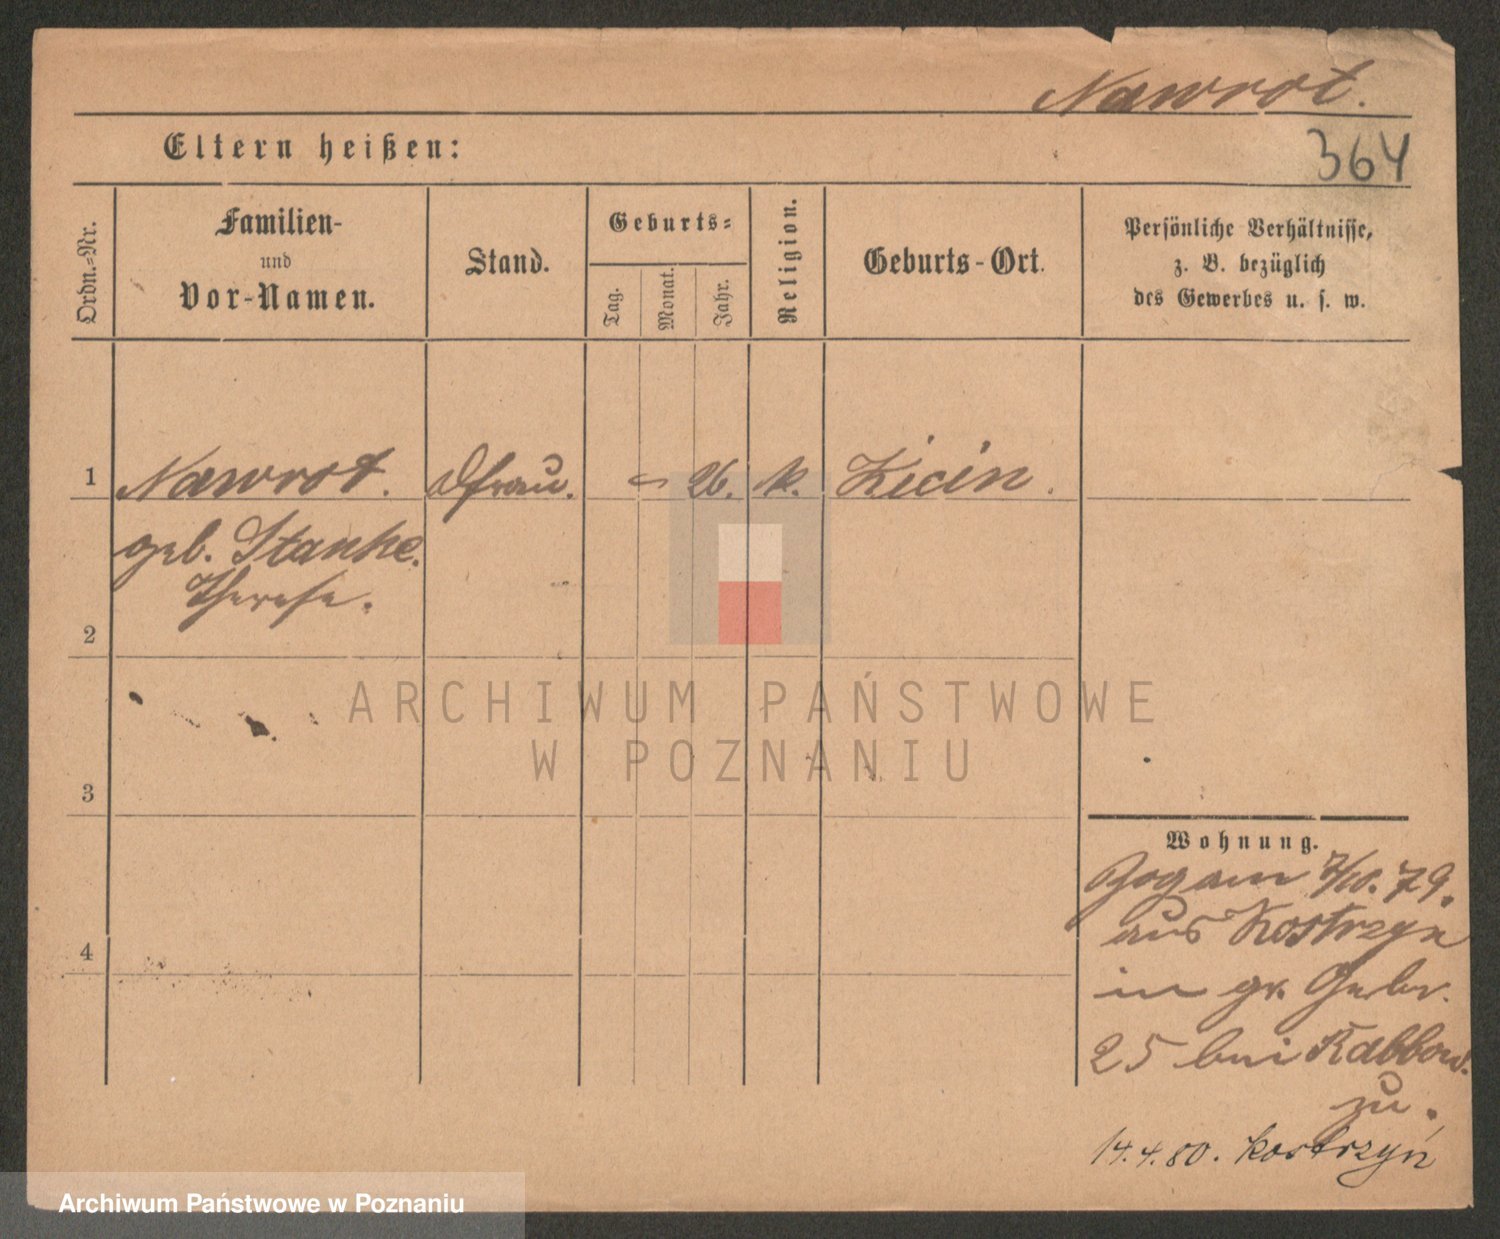 Nawrot.
Eltern heißen:
364
Ordn.-Nr.
Familien-
und
Vor-Namen.
Stand.
Geburts-
Tag.
Monat.
Jahr.
Religion.
Geburts-Ort.
Persönliche Verhältnisse,
z. B. bezüglich
des Gewerbes u. s. w.
1
Nawrot.
26. k.
geb. Stanke.
Therese.
2
ARCHIWUM PAŃSTWOWE
W POZNANIU
3
Wohnung.
Zog am 7/10. 79.
aus Kostrzyn
in gr. Gerbr.
4
25 bei Rabbow.
zu.
14.4.80. Kostrzyń
Archiwum Państwowe w Poznaniu